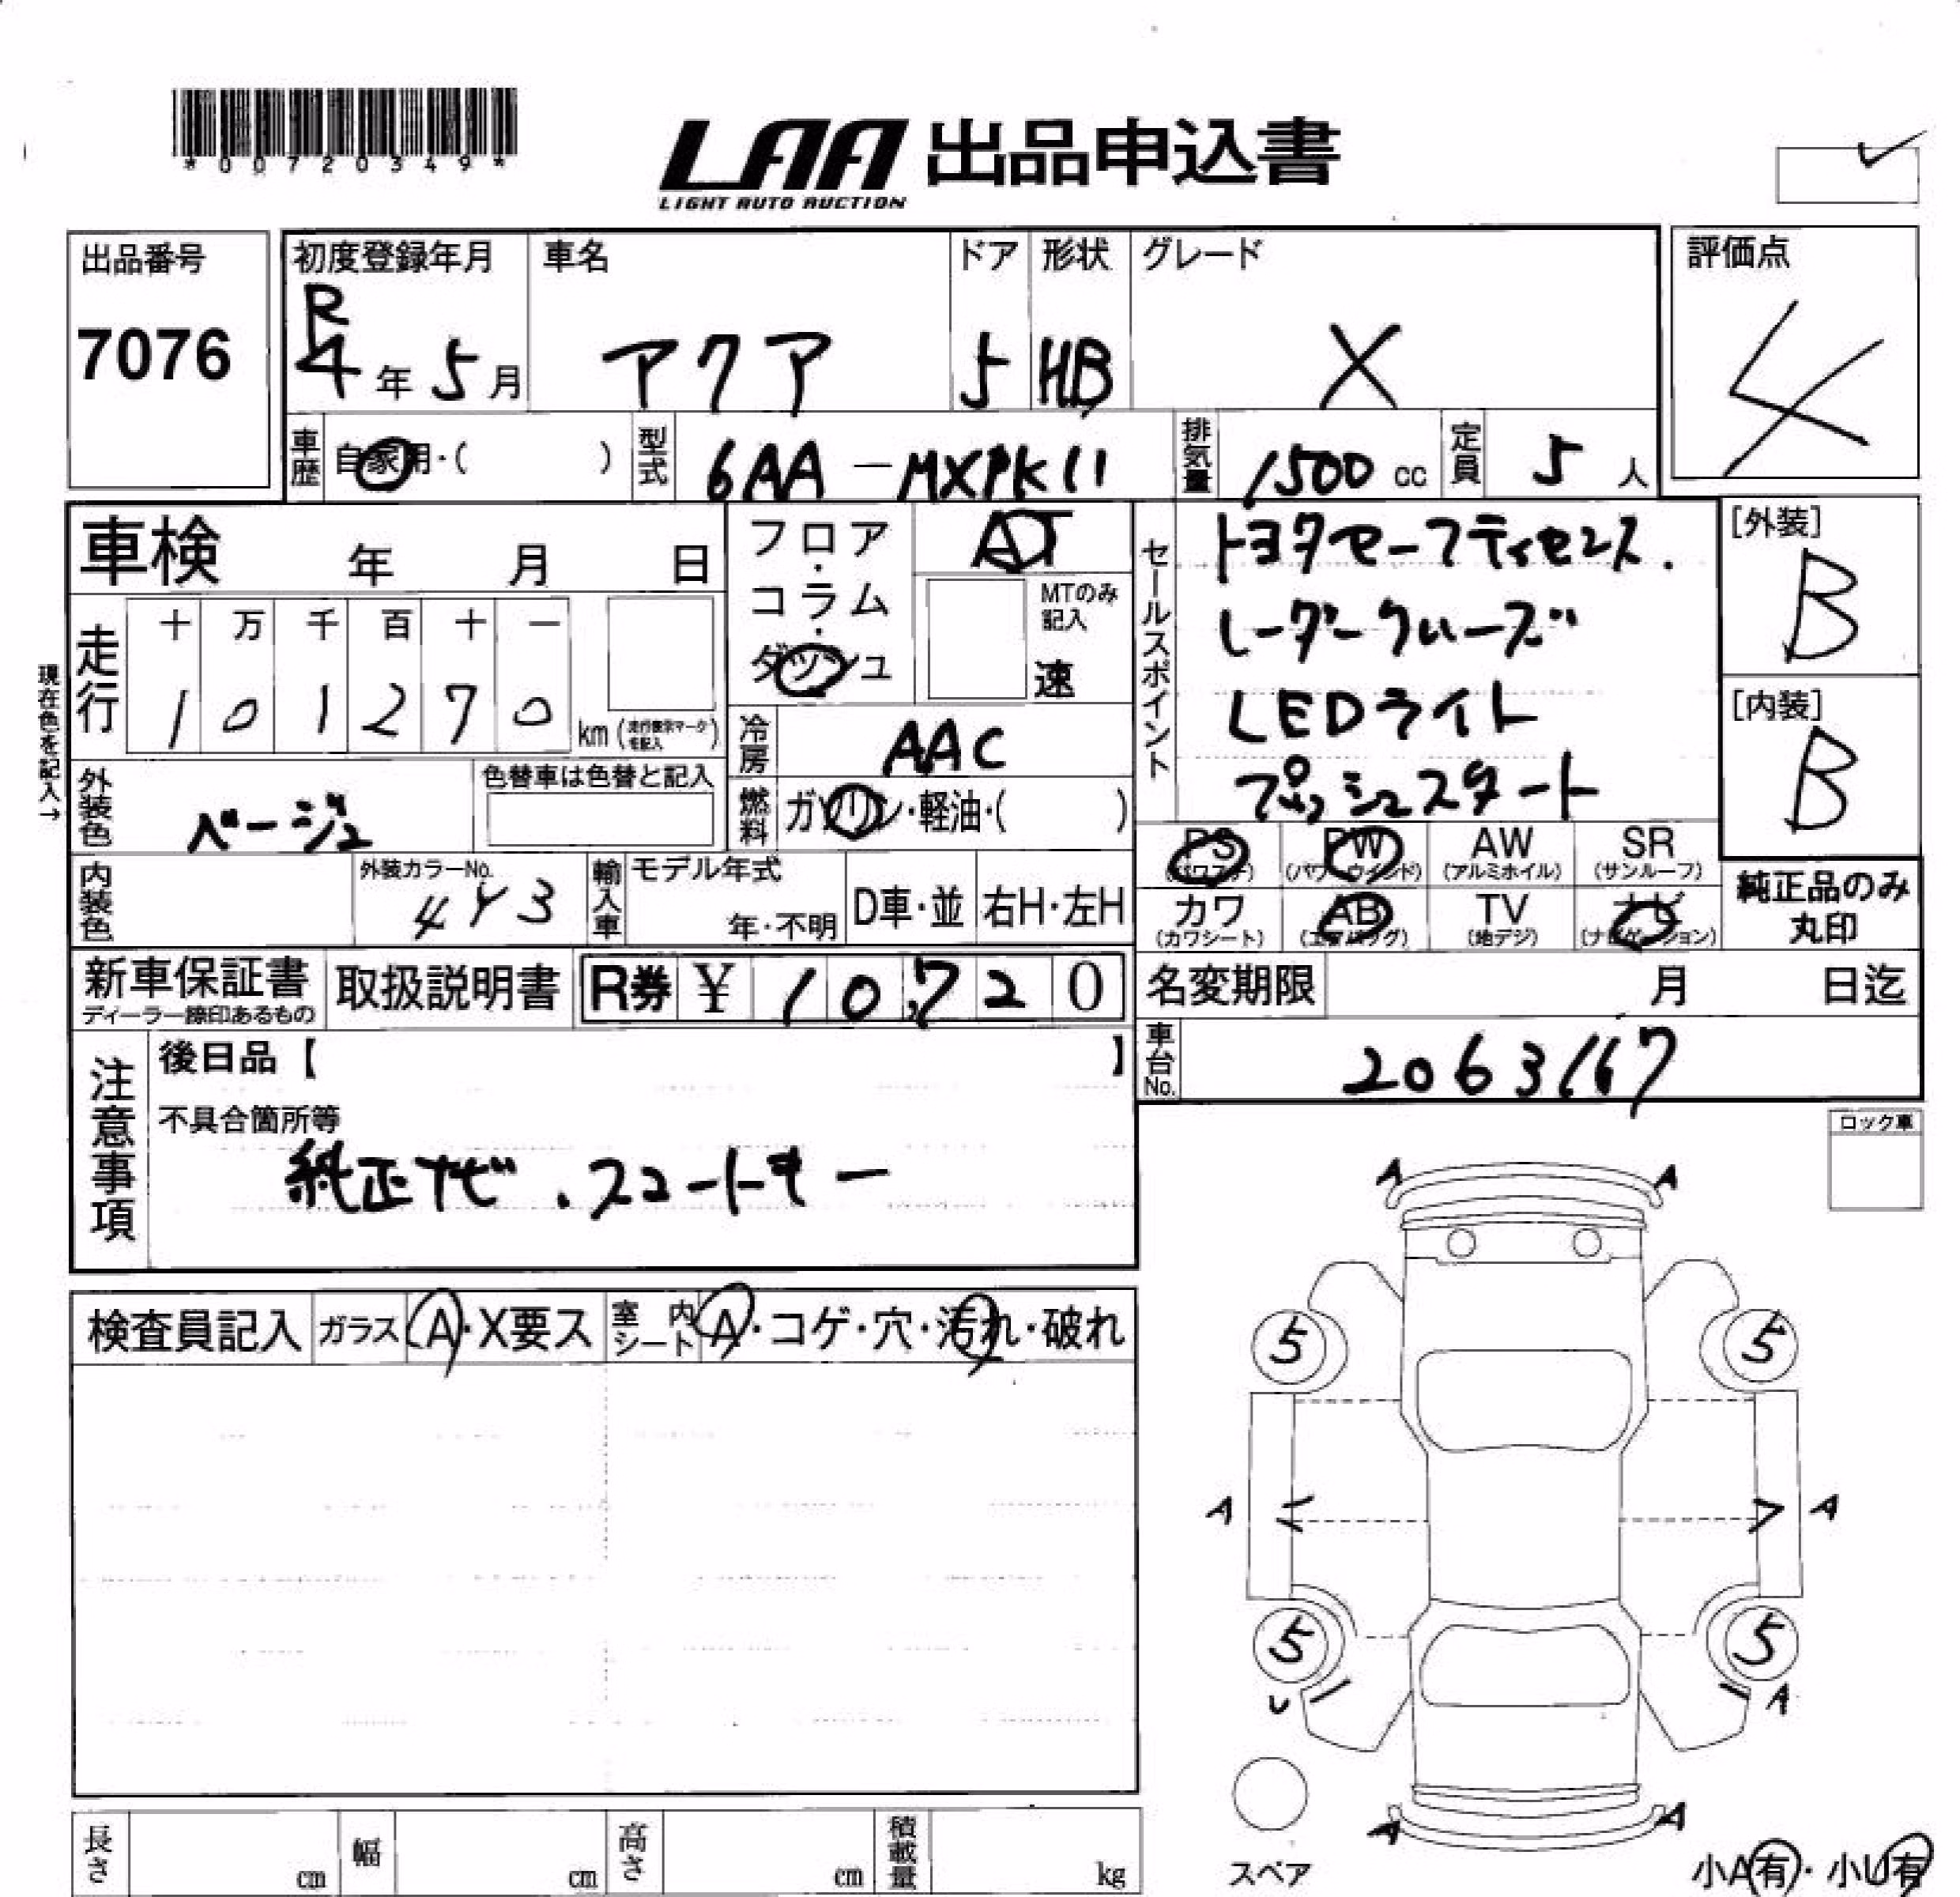 *00720349*
LAA 出品申込書
LIGHT AUTO AUCTION
出品番号
7076
初度登録年月 車名 ドア 形状 グレード
R4年5月 アクア 5 HB X
評価点
4
車歴 自家用・( ) 型式 6AA-MXPK11 排気量 1500cc 定員 5人
車検 年 月 日
フロア・コラム・ダッシュ
AT
MTのみ記入
速
セールスポイント
トヨタセーフティセンス.
レーダークルーズ
LEDライト
プッシュスタート
[外装]
B
[内装]
B
現在色を記入→
走行 十 万 千 百 十 一
1 0 1 2 7 0 km
冷房 AAC
外装色 ベージュ
色替車は色替と記入
燃料 ガソリン・軽油・( )
内装色
外装カラーNo.
4Y3
輸入車 モデル年式
年・不明 D車・並 右H・左H
PS(パワステ) PW(パワーウィンド) AW(アルミホイル) SR(サンルーフ)
カワ(カワシート) AB(エアバッグ) TV(地デジ) ナビ(ナビゲーション)
純正品のみ丸印
新車保証書
ディーラー捺印あるもの
取扱説明書 R券 ¥ 10,720
名変期限 月 日迄
車台No. 2063167
注意事項
後日品【 】
不具合箇所等
純正ナビ.スマートキー
ロック車
検査員記入 ガラス A・X要ス 室内シート A・コゲ・穴・汚れ・破れ
A A
5 5
A A
5 5
U A
A A
スペア
小A有・小U有
長さ cm 幅 cm 高さ cm 積載量 kg